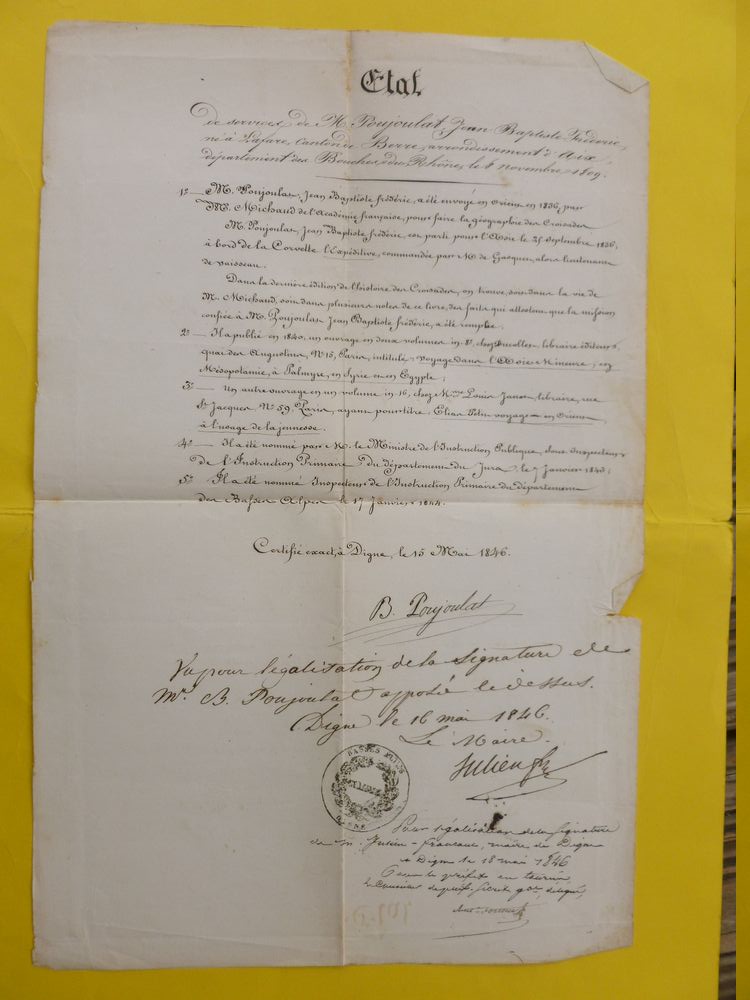 Etat
De services de M. Poujoulat, Jean Baptiste Frédéric,
né à Lafare, Canton de Berre, arrondissement d'Aix,
département des Bouches-du-Rhône, le novembre 1809.
1º — M. Poujoulat, Jean Baptiste frédéric, a été envoyé en Orient en 1836, par
M. Michaud de l'Académie française, pour faire la géographie des Croisades
M. Poujoulat, Jean Baptiste frédéric, est parti pour l'Asie le 25 septembre 1836,
à bord de la Corvette l'Expéditive, commandée par M. de alors lieutenant
de vaisseau.
Dans la dernière édition de l'histoire des Croisades, on trouve, soit dans la vie de
M. Michaud, soit dans plusieurs notes de ce livre, des faits qui attestent que la mission
confiée à M. Poujoulat Jean Baptiste frédéric, a été remplie.
2º — Il a publié en 1840, un ouvrage en deux volumes in 8º, chez Ducollet, libraire éditeur,
quai des Augustins, Nº 15, Paris, intitulé: voyage dans l'Asie Mineure, en
Mésopotamie, à Palmyre, en Syrie et en Egypte;
3º — Un autre ouvrage en un volume in 16, chez Mme Louis Janet, libraire, rue
St Jacques, Nº 59, Paris, ayant pour titre: voyage en Orient
à l'usage de la jeunesse.
4º — Il a été nommé par M. le Ministre de l'Instruction Publique, sous-Inspecteur
de l'Instruction Primaire du département du Jura, le 7 janvier 1843;
5º — Il a été nommé Inspecteur de l'Instruction Primaire du département
des Basses Alpes le 17 Janvier 1844.
Certifié exact, à Digne, le 15 Mai 1846.
B. Poujoulat
Vu pour légalisation de la signature de
Mr. B. Poujoulat apposée ci-dessus.
Digne le 16 mai 1846.
Le Maire.
Julien
BASSES ALPES
Pour légalisation de la signature
de M. Julien-francoul, maire de Digne
à Digne le 18 mai 1846
le préfet en tournée
le Conseiller de préf.